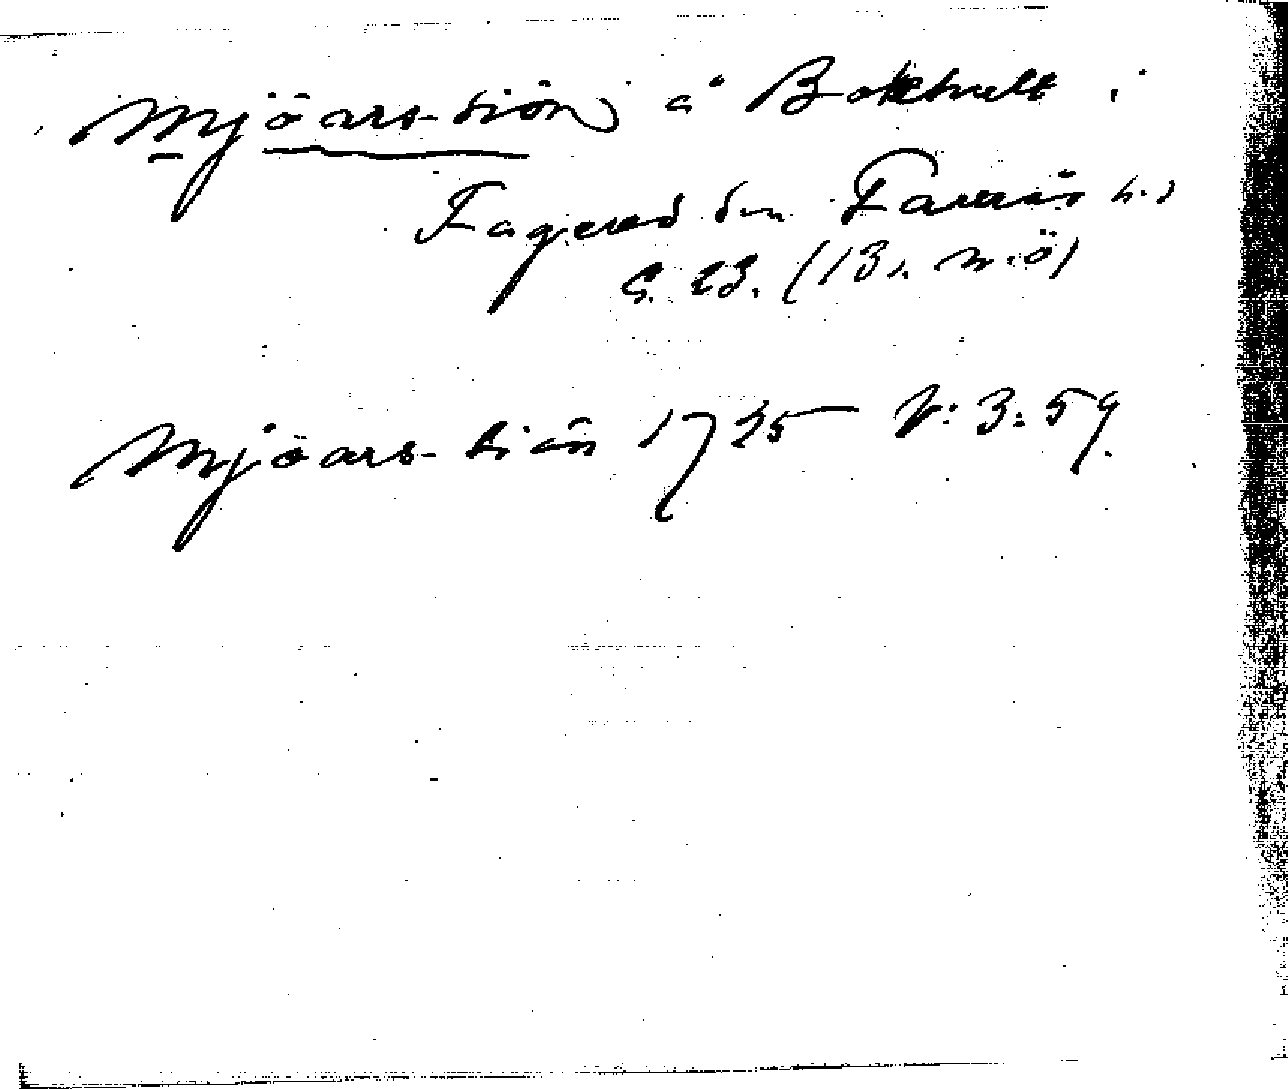 Mjöars-tiön å Bokhult i
Fagered sn Faurås h.d
G. E3. (13. n.ö)
Mjöars-tiön 1725 V:3:59.